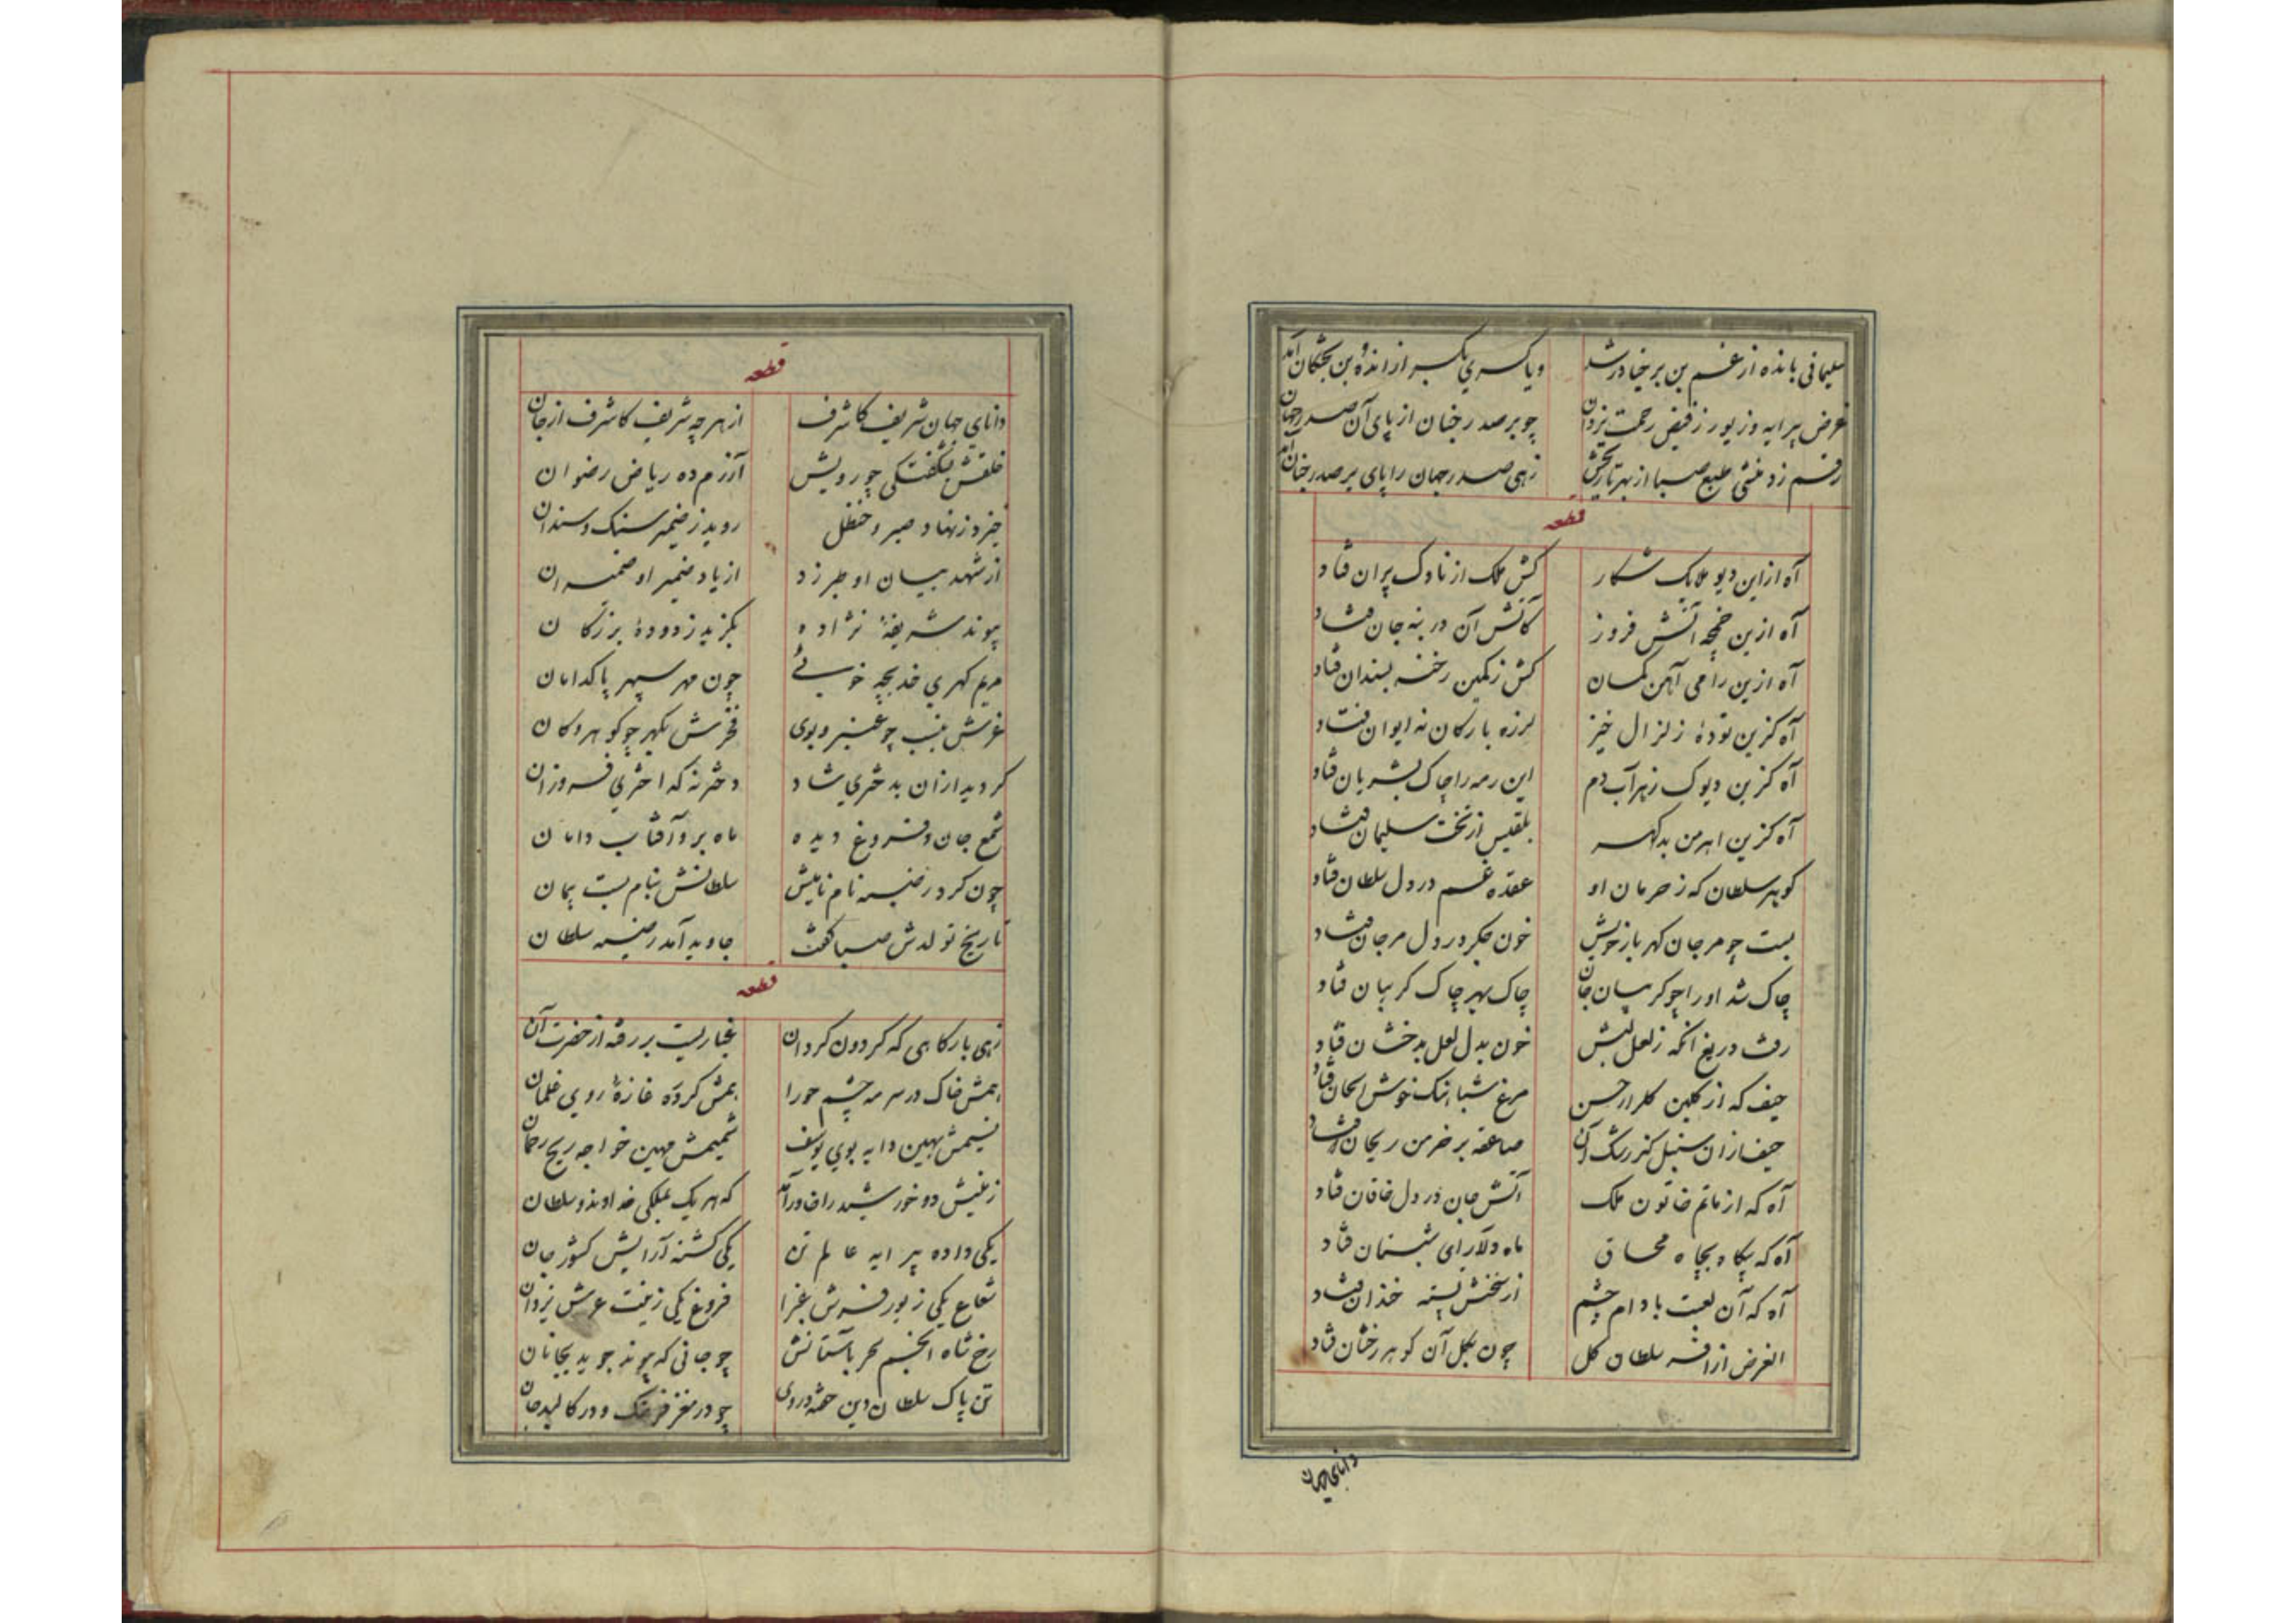 سلیمانی بانده از غم بن برخیا در شد ویا کسری یکسر از انده بن بختکان آمد
غرض پیرایه و زیور ز فیض رحمت یزدان چو بر صدر جنان از پای آن صدر جهان
رقم زد منشی طبع صبا از بهر تاریخش زهی صدر جهان را پای بر صدر جنان آمد
قطعه
آه از این دیو ملایک شکار کش ملک از ناوک پران فتاد
آه ازین خمچه آتش فروز کاتش آن در بنه جان فتاد
آه ازین رامی آهن کمان کش ز کمین رخنه بسندان فتاد
آه کزین تودهٔ زلزال خیز لرزه بارکان نه ایوان فتاد
آه کزین دیوک زهرآب دم این رمه را چاک بشریان فتاد
آه کزین اهرمن بد گهر بلقیس از تخت سلیمان فتاد
گوهر سلطان که ز حرمان او عقده غم در دل سلطان فتاد
بست چو مرجان گهر باز خویش خون جگر در دل مرجان فتاد
چاک شد او را چو گریبان جان چاک بهر چاک گریبان فتاد
رفت دریغ آنکه ز لعل لبش خون بدل لعل بدخشان فتاد
حیف که از گلبن گلزار حسن مرغ شباهنگ خوش الحان فتاد
حیف از آن سنبل کز رشک آن صاعقه بر خرمن ریحان فتاد
آه که از ماتم خاتون ملک آتش جان در دل خاقان فتاد
آه که بیگاه بچاه محاق ماه دلارای شبستان فتاد
آه که آن لعبت بادام چشم از سخنش پسته خندان فتاد
الغرض از افسر سلطان گل چون بگل آن گوهر رخشان فتاد
دانای جهان
قطعه
دانای جهان شریف کاشرف از هر چه شریف کاشرف از جان
خلقش بشگفتگی چو رویش آزرم ده ریاض رضوان
خیزد ز نهاد صبر و حنظل روید ز ضمیر سنگ و سندان
از شهد بیان او طبرزد از یاد ضمیر او ضمیران
پیوند شریفهٔ نژاده بگزید ز دودهٔ بزرگان
مریم گهری خدیجه خوئی چون مهر سپهر پاکدامان
عرش بنسب چو عنبر و بوی فخرش بگهر چو گوهر و کان
گردید از آن بدختری شاد دختر نه که اختری فروزان
شمع جان و فروغ دیده ماه برو آفتاب دامان
چون کرد رضیه نام نامیش سلطانش بنام بست پیمان
تاریخ تولدش صبا گفت جاوید آمد رضیه سلطان
قطعه
زهی بارگاهی که گردون گردان غباریست بر رفته از حضرت آن
همش خاک در سرمه چشم حورا همش گرد ره غازهٔ روی غلمان
نسیمش بهین دایه بوی یوسف شمیمش مهین خواجه ریح رحمان
زمینش دو خورشید را خاور آمد که هر یک بملکی خداوند و سلطان
یکی داده پیرایه عالم تن یکی گشته آرایش کشور جان
شعاع یکی زیور فرش غبرا فروغ یکی زینت عرش یزدان
رخ شاه انجم بر آستانش چو جانی که پیوند جوید بجانان
تن پاک سلطان دین حمزه در وی چو در مغز فرهنگ و در کالبد جان